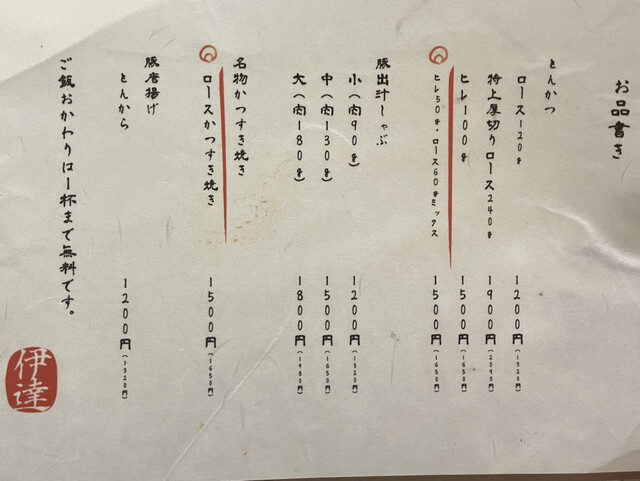 お品書き
とんかつ
ロース120g 1200円(1320円)
特上厚切りロース240g 1900円(2090円)
ヒレ100g 1500円(1650円)
ヒレ50g・ロース60gミックス 1500円(1650円)
豚出汁しゃぶ
小(肉90g) 1200円(1320円)
中(肉130g) 1500円(1650円)
大(肉180g) 1800円(1980円)
名物かつすき焼き
ロースかつすき焼き 1500円(1650円)
豚唐揚げ
とんから 1200円(1320円)
ご飯おかわりは1杯まで無料です。
伊達